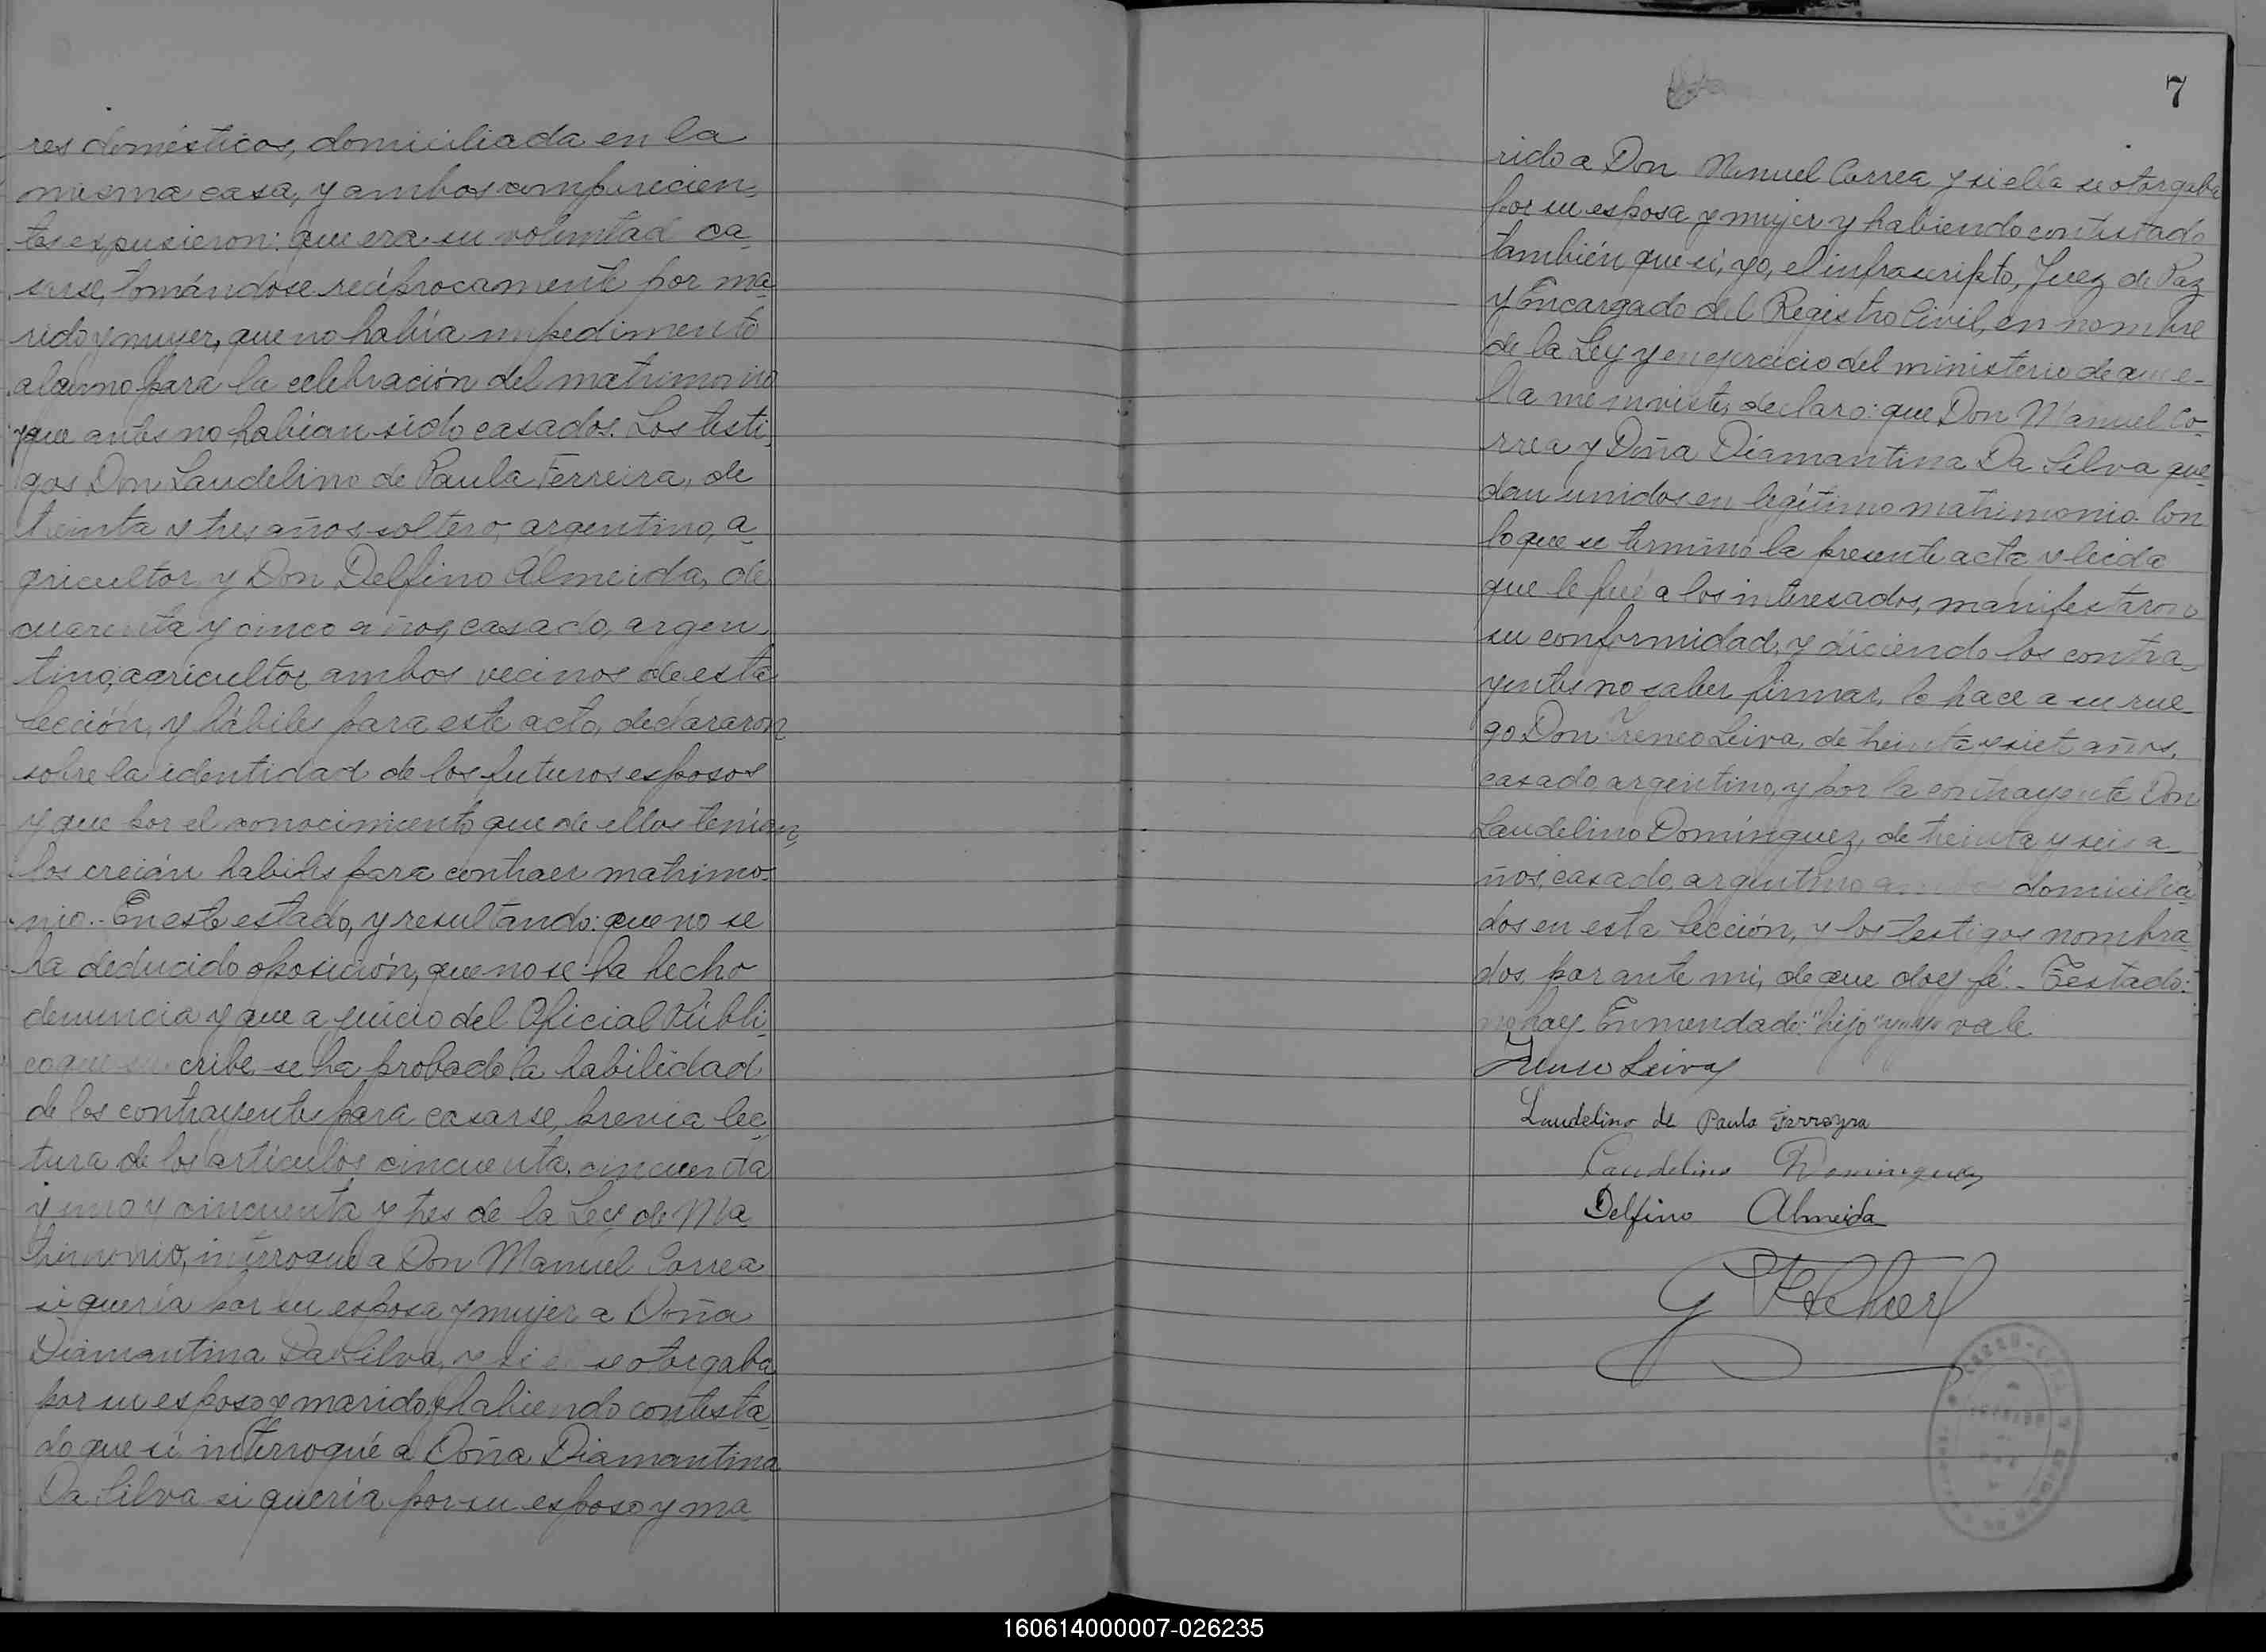 res domésticos, domiciliada en la
misma casa, y ambos comparecien-
tes expusieron: que era su voluntad ca-
sarse, tomándose recíprocamente por ma-
rido y mujer, que no había impedimento
alguno para la celebración del matrimonio
y que antes no habían sido casados. Los testi-
gos Don Laudelino de Paula Ferreira, de
treinta y tres años, soltero, argentino, a-
gricultor y Don Delfino Almeida, de
cuarenta y cinco años, casado, argen-
tino, agricultor, ambos vecinos de esta
Sección, y hábiles para este acto, declararon
sobre la identidad de los futuros esposos
y que por el conocimiento que de ellos tenían,
los creían habiles para contraer matrimo-
nio.- En este estado, y resultando: que no se
ha deducido oposición, que no se ha hecho
denuncia y que a juicio del Oficial Públi-
co que suscribe se ha probado la habilidad
de los contrayentes para casarse, previa lec-
tura de los artículos cincuenta, cincuenta
y uno y cincuenta y tres de la Ley de Ma-
trimonio, interrogué a Don Manuel Correa
si quería por su esposa y mujer a Doña
Diamantina Da Silva, y si se otorgaba
por su esposo y marido, y habiendo contesta-
do que sí interrogué a Doña Diamantina
Da Silva si quería por su esposo y ma-
7
rido a Don Manuel Correa y si ella se otorgaba
por su esposa y mujer y habiendo contestado
también que sí, yo, el infrascripto, Juez de Paz
y Encargado del Registro Civil, en nombre
de la Ley y en ejercicio del ministerio de que e-
lla me inviste, declaro: que Don Manuel Co-
rrea y Doña Diamantina Da Silva que-
dan unidos en legítimo matrimonio. Con
lo que se terminó la presente acta, y leida
que le fué a los interesados, manifestaron
su conformidad, y diciendo los contra-
yentes no saber firmar, lo hace a su rue-
go Don Ireneo Leiva, de treinta y siete años,
casado, argentino, y por la contrayente Don
Laudelino Domínguez, de treinta y seis a-
ños, casado, argentino ambos domicilia-
dos en esta Sección, y los testigos nombra-
dos, por ante mi, de que doy fé.- Testado:
no hay Enmendado: "hijo" vale
Ireneo Leiva
Laudelino de Paula Ferreyra
Laudelino Dominguez
Delfino Almeida
160614000007-026235